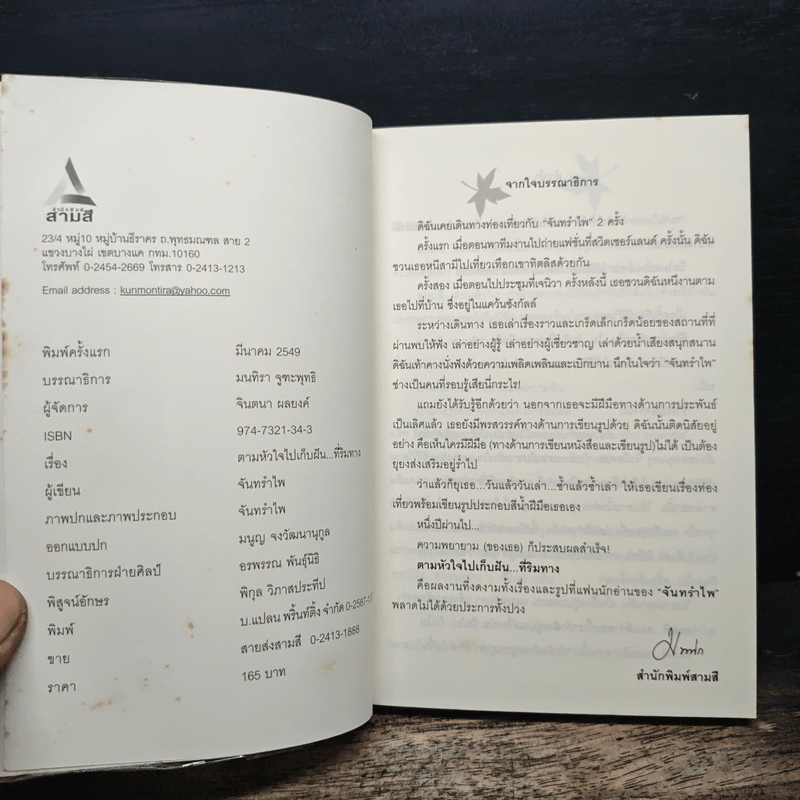 สำนักพิมพ์
สามสี
23/4 หมู่10 หมู่บ้านธีราคร ถ.พุทธมณฑล สาย 2
แขวงบางไผ่ เขตบางแค กทม.10160
โทรศัพท์ 0-2454-2669 โทรสาร 0-2413-1213
Email address : kunmontira@yahoo.com
พิมพ์ครั้งแรก มีนาคม 2549
บรรณาธิการ มนทิรา จูฑะพุทธิ
ผู้จัดการ จินตนา ผลยงค์
ISBN 974-7321-34-3
เรื่อง ตามหัวใจไปเก็บฝัน...ที่ริมทาง
ผู้เขียน จันทรำไพ
ภาพปกและภาพประกอบ จันทรำไพ
ออกแบบปก มนูญ จงวัฒนานุกูล
บรรณาธิการฝ่ายศิลป์ อรพรรณ พันธุ์นิธิ
พิสูจน์อักษร พิกุล วิภาสประทีป
พิมพ์ บ.แปลน พริ้นท์ติ้ง จำกัด 0-2587-
ขาย สายส่งสามสี 0-2413-1888
ราคา 165 บาท
จากใจบรรณาธิการ
ดิฉันเคยเดินทางท่องเที่ยวกับ “จันทรำไพ” 2 ครั้ง
ครั้งแรก เมื่อตอนพาทีมงานไปถ่ายแฟชั่นที่สวิตเซอร์แลนด์ ครั้งนั้น ดิฉัน
ชวนเธอหนีสามีไปเที่ยวเทือกเขาทิตลิสด้วยกัน
ครั้งสอง เมื่อตอนไปประชุมที่เจนิวา ครั้งหลังนี้ เธอชวนดิฉันหนีงานตาม
เธอไปที่บ้าน ซึ่งอยู่ในแคว้นซังกัลล์
ระหว่างเดินทาง เธอเล่าเรื่องราวและเกร็ดเล็กเกร็ดน้อยของสถานที่ที่
ผ่านพบให้ฟัง เล่าอย่างผู้รู้ เล่าอย่างผู้เชี่ยวชาญ เล่าด้วยน้ำเสียงสนุกสนาน
ดิฉันเท้าคางนั่งฟังด้วยความเพลิดเพลินและเบิกบาน นึกในใจว่า “จันทรำไพ”
ช่างเป็นคนที่รอบรู้เสียนี่กระไร!
แถมยังได้รับรู้อีกด้วยว่า นอกจากเธอจะมีฝีมือทางด้านการประพันธ์
เป็นเลิศแล้ว เธอยังมีพรสวรรค์ทางด้านการเขียนรูปด้วย ดิฉันนั้นติดนิสัยอยู่
อย่าง คือเห็นใครมีฝีมือ (ทางด้านการเขียนหนังสือและเขียนรูป)ไม่ได้ เป็นต้อง
ยุยงส่งเสริมอยู่ร่ำไป
ว่าแล้วก็ยุเธอ...วันแล้ววันเล่า...ซ้ำแล้วซ้ำเล่า ให้เธอเขียนเรื่องท่อง
เที่ยวพร้อมเขียนรูปประกอบสีน้ำฝีมือเธอเอง
หนึ่งปีผ่านไป...
ความพยายาม (ของเธอ) ก็ประสบผลสำเร็จ!
ตามหัวใจไปเก็บฝัน...ที่ริมทาง
คือผลงานที่งดงามทั้งเรื่องและรูปที่แฟนนักอ่านของ “จันทรำไพ”
พลาดไม่ได้ด้วยประการทั้งปวง
สำนักพิมพ์สามสี